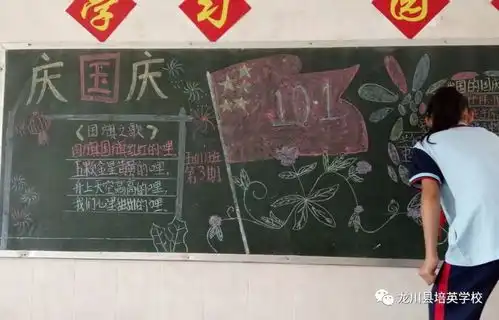 学 习 园
庆国庆
《国旗之歌》
国旗国旗红红的哩
五颗金星黄黄的哩
升上天空高高的哩
我们心里
第3期
101
龙川县培英学校